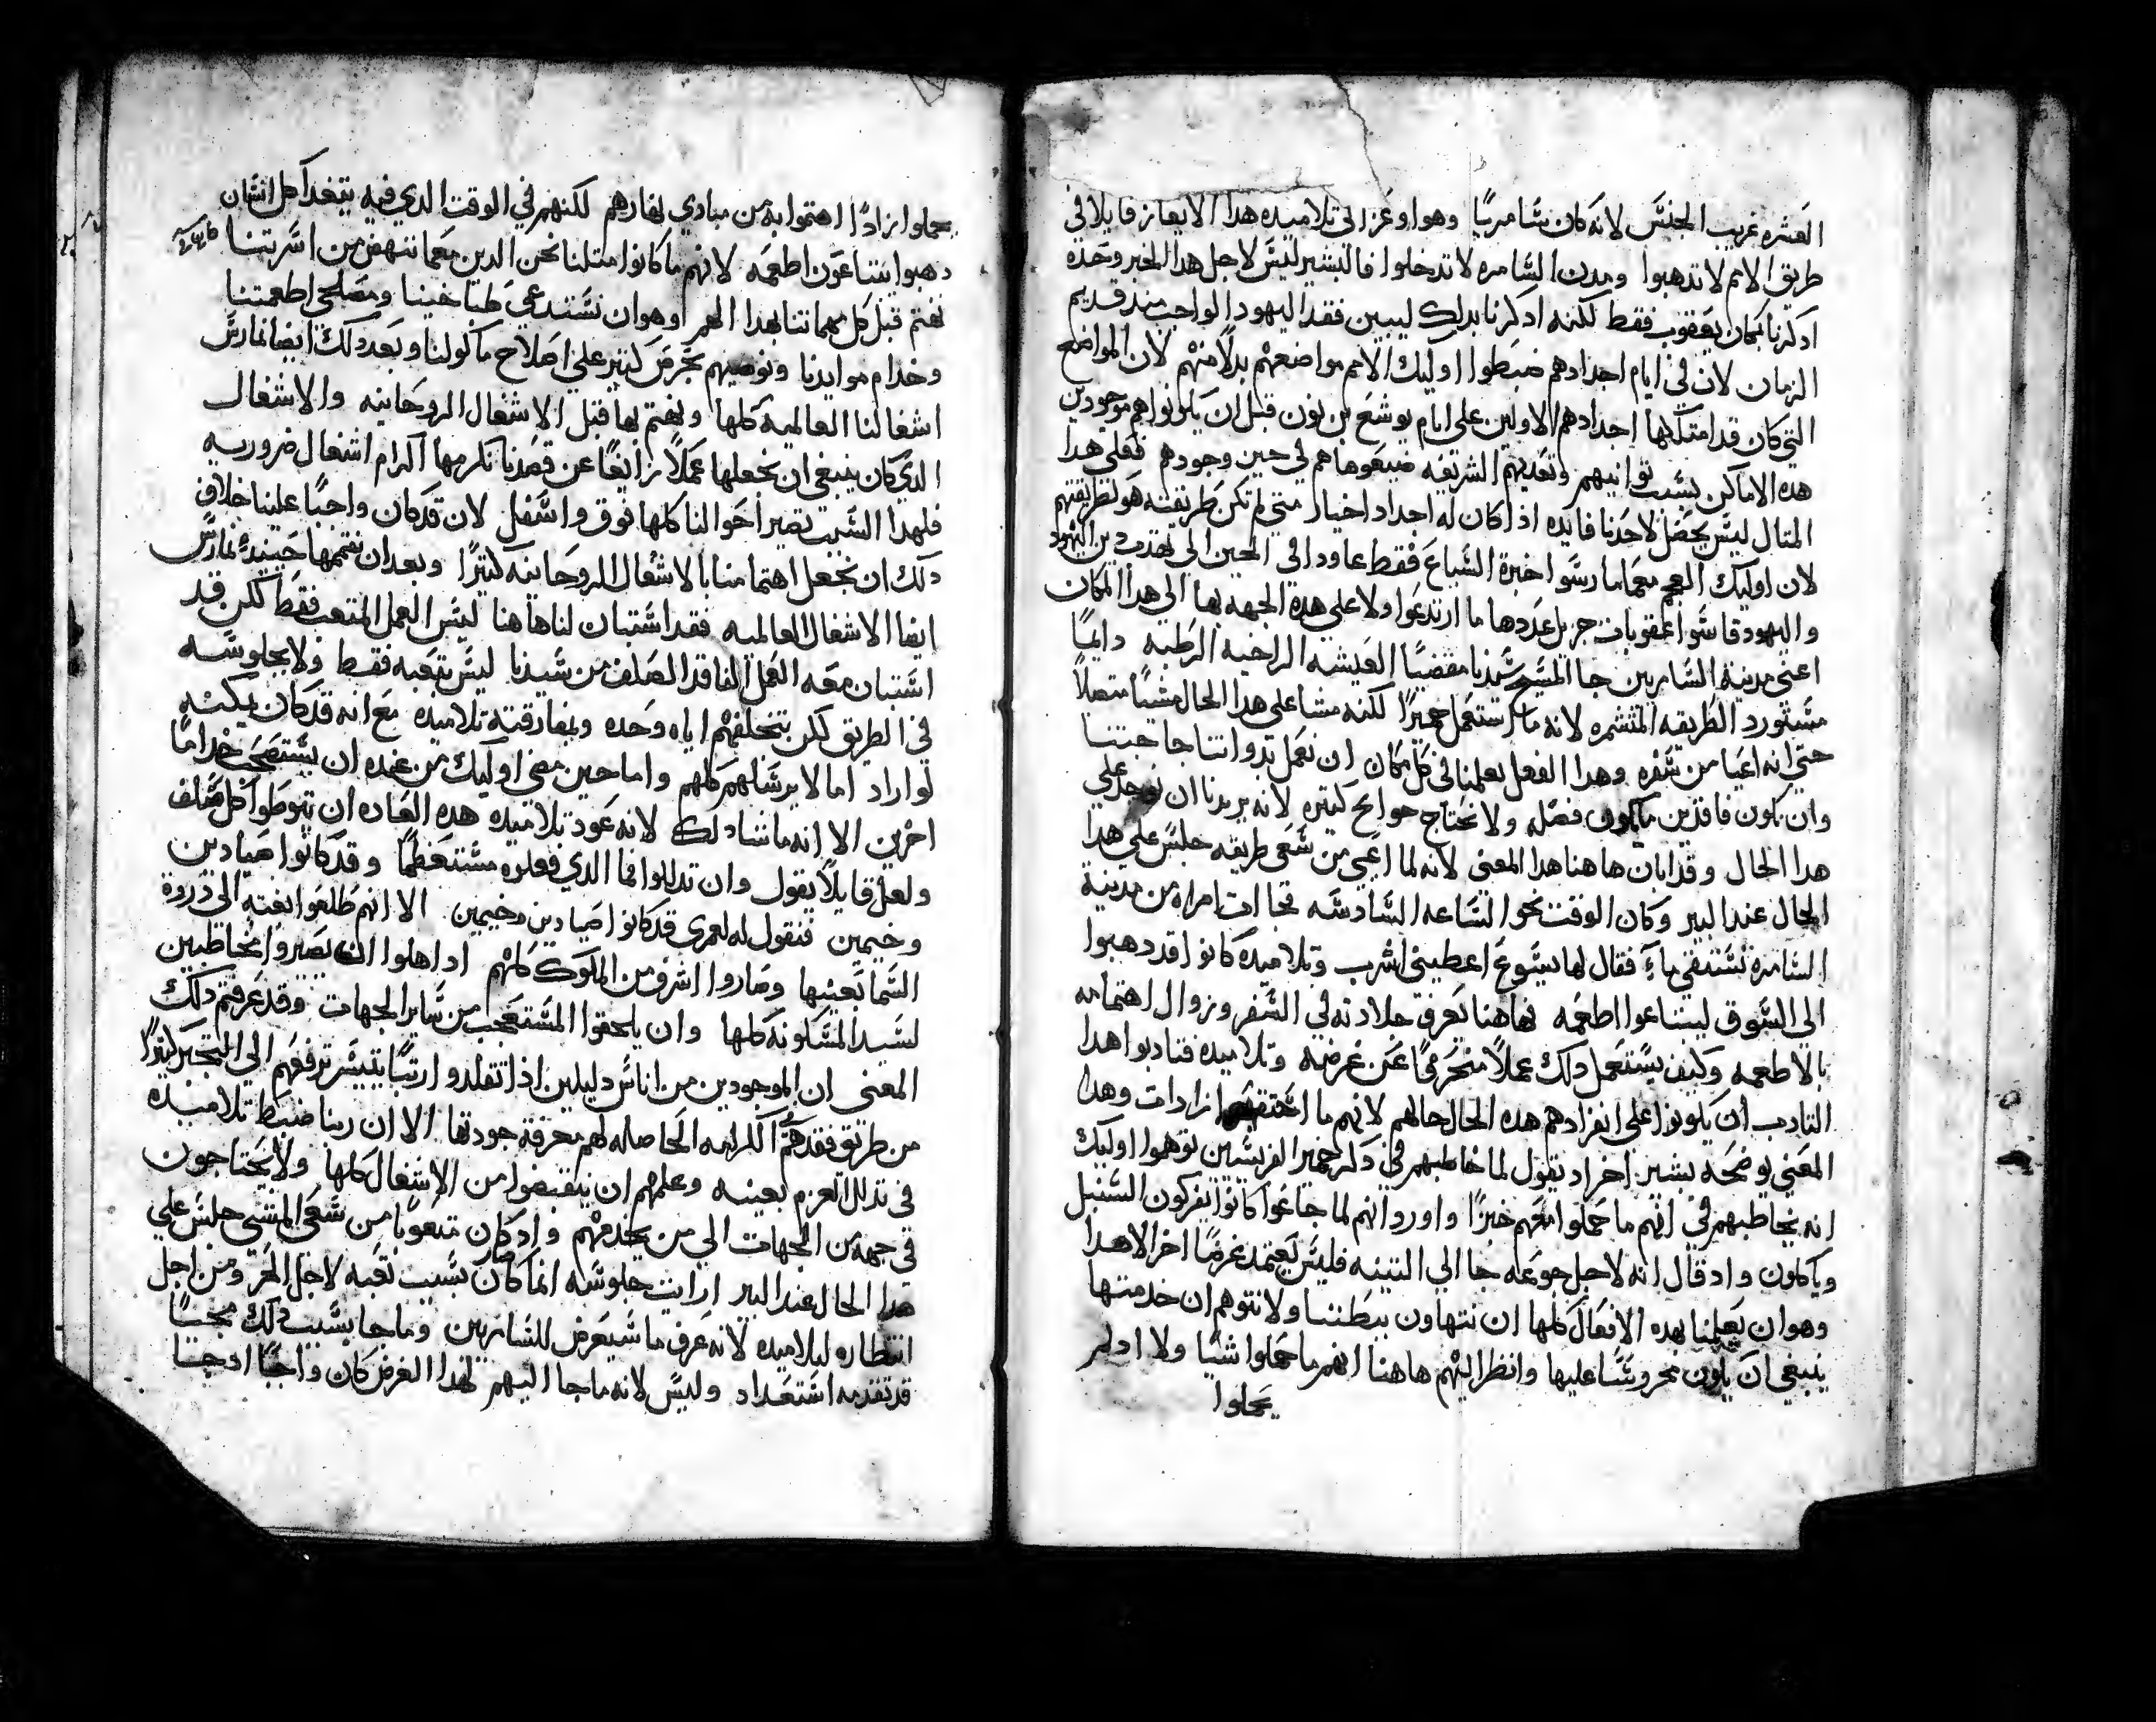 العشره غريب الجنس لانه كان سامريا وهو اوعز الى تلاميده هدا الايعاز قايلا في
طريق الامم لا تدهبوا ومدن السامره لا تدخلوا فالبشير ليس لاجل هدا الخبر وحده
ادكرنا بمكان يعقوب فقط لكنه ادكرنا بدلك ليبين فقد اليهود الواجب مند قديم
الزمان لان في ايام اجدادهم ضبطوا اوليك الامم مواضعهم بدلا منهم لان المواضع
التي كان قد امتلكها اجدادهم الاولين على ايام يوشع بن نون قبل ان يكونوا هم موجودين
هده الاماكن بسبب توانيهم وتعديهم الشريعه ضيعوها هم في حين وجودهم فعلى هدا
المتال ليس يحصل لاحدنا فايده اذا كان له اجداد اخيار متى لم تكن طريقته هو كطريقتهم
لان اوليك العجم معما مارسوا خبرة السباع فقط عاودا في الحين الى تهدب دين اليهود
واليهود قاسوا عقوبات جزيل عددها ما ارتدعوا ولا على هده الجهه بها الى هدا المكان
اعني مدينة السامريين جا المسيح سيدنا مقضيا العيشه الراخيه الرطبه دايما
مستورد الطريقه المتشمره لانه ما استعمل حميرا لكنه مشا على هدا الحال مشيا متصلا
حتي انه اعيا من سفره وهدا الفعل يعلمنا في كل مكان ان نعمل بدواتنا حاجتنا
وان نكون فاقدين ما يكون فضله ولا نحتاج حوايج كتيره لانه يريدنا ان نوجد على
هدا الحال وقد ابان هاهنا هدا المعنى لانه لما اعيي من سعى طريقه جلس على هدا
الحال عند البير وكان الوقت نحو الساعه السادسه فجاات امراه من مدينة
السامره تستقي ماء فقال لها يسوع اعطيني اشرب وتلاميده كانوا قد دهبوا
الى السوق ليبتاعوا اطعمه فهاهنا نعرف جلادته في السفر وزوال اهتمامه
بالاطعمه وكيف يستعمل دلك عملا منحرفا عن غرضه وتلاميده فتادبوا هدا
التادب ان يكونوا على انفرادهم هده الحال حالهم لانهم ما ازادات وهدا
المعنى يوضحه بشير اخر اد يقول لما خاطبهم في دكر خمير الفريسين توهموا اوليك
انه يخاطبهم في انهم ما حملوا معهم خبزا واورد انهم لما جاعوا كانوا يفركون السنبل
وياكلون واد قال انه لاجل جوعه جا الى التينه فليس يعتمد غرضا اخر الا هدا
وهو ان يعلمنا بهده الافعال كلها ان نتهاون ببطننا ولا نتوهم ان خدمتها
ينبغي ان يكون محروسا عليها وانظر اليهم هاهنا انهم ما حملوا شيا ولا اد لم
يحملوا
يحملوا زادا اهتموا به من مبادي نهارهم لكنهم في الوقت الدي فيه يتغدا كل انسان
دهبوا يبتاعون اطعمه لانهم ما كانوا متلنا نحن الدين معما ننهض من اسرتنا
نهتم قبل كل مهماتنا بهدا الهم وهو ان نستدعي طباخينا ومصلحي اطعمتنا
وخدام موايدنا ونوصيهم بحرص كتير على اصلاح ماكولنا وبعد دلك ايضا نمارس
اشغالنا العالميه كلها ونهتم بها قبل الاشغال الروحانيه والاشغال
الدي كان ينبغي ان نجعلها عملا زايغا عن قصدنا نكرمها اكرام اشغال ضروريه
فلهدا السبب تصير احوالنا كلها فوق واسفل لان قد كان واجبا علينا خلاف
دلك ان نجعل اهتمامنا بالاشغال الروحانيه كتيرا وبعد ان نتممها حينيد نمارس
ايضا الاشغال العالميه فقد استبان لنا هاهنا ليس العمل المتعب فقط لكن قد
استبان معه الفعل الفاقد الصلف من سيدنا ليس بتعبه فقط ولا بجلوسه
في الطريق لكن بتخلفهم اياه وحده وبمفارقته تلاميده مع انه قد كان يمكنه
لو اراد اما لا يرسلهم كلهم واما حين مضى اوليك من عنده ان يستصحب خداما
اخرين الا انه ما شا دلك لانه عود تلاميده هده العاده ان يتوطوا كل صلف
ولعل قايلا يقول وان تدللوا فما الدي فعلوه مستعظما وقد كانوا صيادين
وخيمين فنقول له لعمرى قد كانوا صيادين وخيمين الا انهم طلعوا بغته الى دروة
السما بعينها وصاروا اشرف من الملوك كلهم اد اهلوا ان يصيروا مخاطبين
لسيد المسكونه كلها وان يلحقوا المستعجب من ساير الجهات وقد عرفتم دلك
المعنى ان الموجودين من اناس دليلين اذا تقلدوا رتبا يتيسر ترفعهم الى التجبر كتيرا
من طريق فقدهم الكرامه الحاصله لهم معرفة جودتها الا ان ربنا ضبط تلاميده
في تدلل العزم بعينه وعلمهم ان ينقبضوا من الاشغال كلها ولا يحتاجون
في جهه من الجهات الى من يخدمهم واد كان متعوبا من سعى المشي جلس على
هدا الحال عند البير ارايت جلوسه انما كان بسبب تعبه لاجل الحر ومن اجل
انتظاره لتلاميده لانه عرف ما سيعرض للسامريين وما جا بسبب دلك مجيا
قد تقدمه استعداد وليس لانه ما جا اليهم لهدا الغرض كان واجبا اد جا